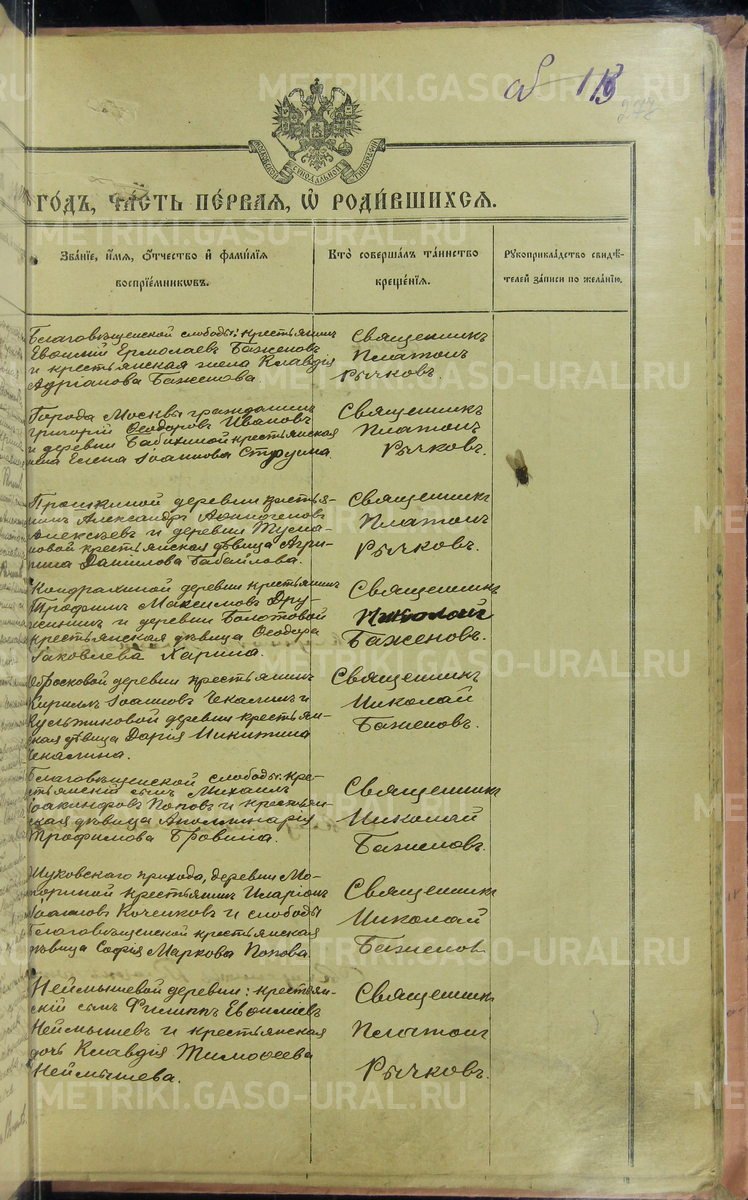 об 113
272
ГОДЪ, ЧАСТЬ ПЕРВАЯ, Ѡ РОДИВШИХСЯ.
Званіе, имя, отчество и фамилія воспріемниковъ.
Кто совершалъ таинство крещенія.
Рукоприкладство свидѣтелей записи по желанію.
Благовѣщенской слободы: крестьянинъ
Евѳимій Ермолаевъ Баженовъ
и крестьянская жена Клавдія
Адріанова Баженова
Священникъ
Платонъ
Рычковъ.
Города Москвы гражданинъ
Григорій Ѳеодоровъ Ивановъ
и деревни Бабихиной крестьянская
жена Елена Іоаннова Струина
Священникъ
Платонъ
Рычковъ.
деревни крестья-
нинъ Александръ
Алексѣевъ и деревни Тума-
новой крестьянская дѣвица Агри-
пина Данилова Бабайлова.
Священникъ
Платонъ
Рычковъ.
Кондрахиной деревни крестьянинъ
Трофимъ Максимовъ Дру-
жининъ и деревни Болотовой
крестьянская дѣвица Ѳеодора
Іаковлева Харина.
Священникъ
Николай
Баженовъ.
деревни крестьянинъ
Кириллъ Іоанновъ Чекалинъ и
деревни крестьян-
ская дѣвица Дарія Никитина
Чекалина.
Священникъ
Николай
Баженовъ.
Благовѣщенской слободы: кре-
стьянскій сынъ Михаилъ
Іоакинфовъ Поповъ и крестьян-
ская дѣвица Аполлинарія
Трофимова Бровина.
Священникъ
Николай
Баженовъ.
Жуковскаго прихода, деревни Мо-
хириной крестьянинъ Иларіонъ
Іоанновъ Коченковъ и слободы
Благовѣщенской крестьянская
дѣвица Софія Маркова Попова.
Священникъ
Николай
Баженов
Неймышевой деревни: крестьян-
скій сынъ Филиппъ Евѳиміевъ
Неймышевъ и крестьянская
дочь Клавдія Тимоѳеева
Неймышева.
Священникъ
Платонъ
Рычковъ.
METRIKI.GASO-URAL.RU